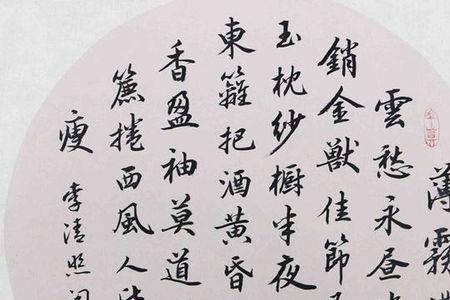 薄霧
雲愁永晝
銷金獸佳節
玉枕紗櫥半夜
東籬把酒黃昏
香盈袖莫道
簾捲西風人
瘦
李清照